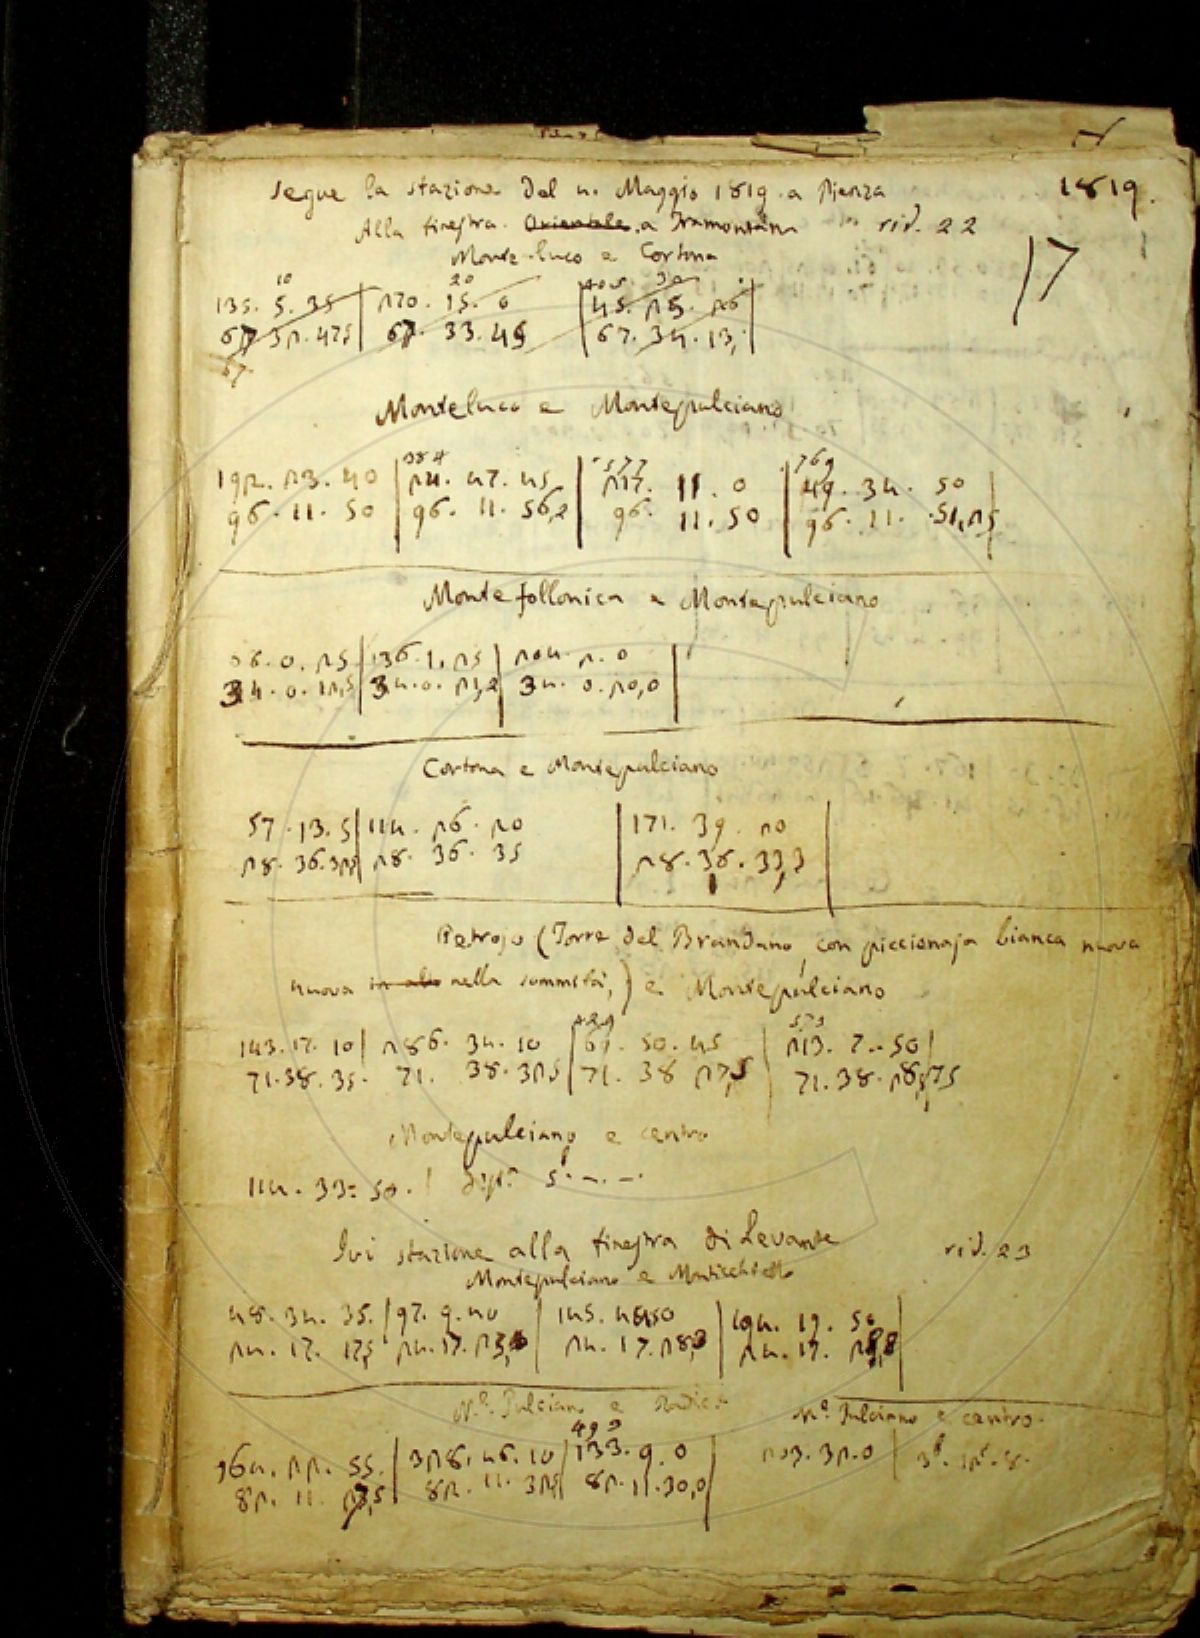 1819.
Segue la stazione del 4. Maggio 1819. a Pienza
Alla finestra Orientale a Tramontana rid. 22
17
Monte-luco e Cortona
10 20 405 30
135. 5. 35 | 270. 15. 0 | 45. 25. 26
67 32. 475 | 67. 33. 45 | 67. 34. 13,
67
Monteluco e Montepulciano
384 577 769
192. 23. 40 | 24. 47. 45 | 217. 11. 0 | 49. 34. 50
96. 11. 50 | 96. 11. 56,2 | 96. 11. 50 | 96. 11. 51,25
Monte follonica e Montepulciano
68. 0. 25 | 136. 1. 25 | 204. 2. 0
34. 0. 12,5 | 34. 0. 21,2 | 34. 0. 20,0
Cortona e Montepulciano
57. 13. 5 | 114. 26. 20 | 171. 39. 20
28. 36. 325 | 28. 36. 35 | 28. 36. 33,3
Petrojo (Torre del Brandano, con piccionaja bianca nuova
nuova in alto nella sommità,) e Montepulciano
429 573
143. 17. 10 | 286. 34. 10 | 69. 50. 45 | 213. 7. 50
71. 38. 35. | 71. 38. 325 | 71. 38 27,5 | 71. 38. 28,75
Montepulciano e centro
114. 33. 50. |
Ivi stazione alla finestra di Levante rid. 23
Montepulciano e Montichiello
48. 34. 35. | 97. 9. 40 | 145. 44 50 | 194. 19. 50
24. 17. 175 | 24. 17. 25, | 24. 17. 28,3 | 24. 17. 28,8
M.e Pulciano e Radic. M.e Pulciano e centro.
493
164. 22. 55. | 328. 46. 10 | 133. 9. 0 203. 32. 0
82. 11. 27,5 | 82. 11. 325 | 82. 11. 30,0